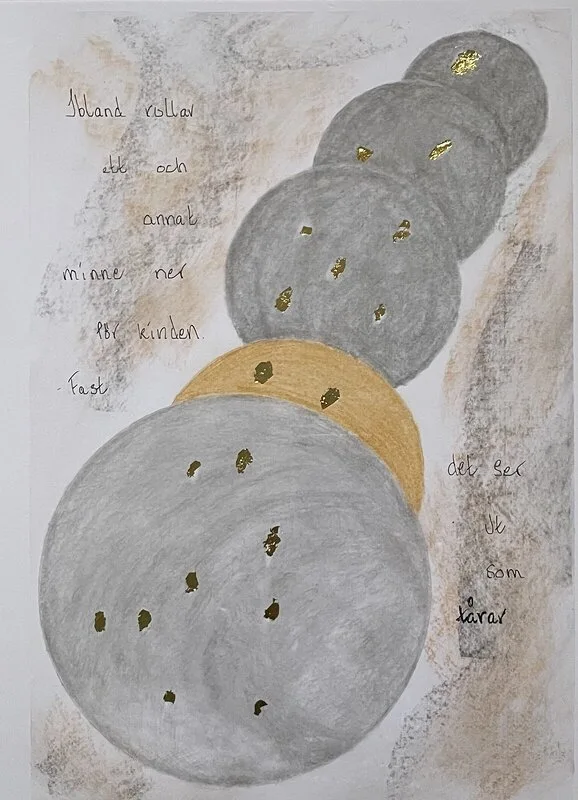 Ibland rullar
ett och
annat
minne ner
för kinden.
- Fast
det ser
ut
som
tårar